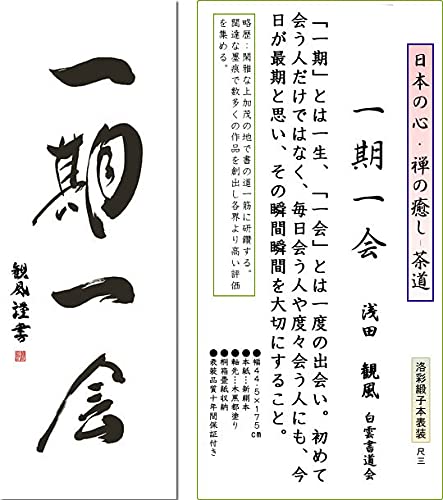 一期一会
観風謹書
日本の心・禅の癒し-茶道
一期一会
浅田 観風 白雲書道会
洛彩緞子本表装 尺三
「一期」とは一生、「一会」とは一度の出会い。初めて
会う人だけではなく、毎日会う人や度々会う人にも、今
日が最期と思い、その瞬間瞬間を大切にすること。
略歴:閑雅な上加茂の地で書の道一筋に研鑽する。
闊達な墨痕で数多くの作品を創出し各界より高い評価
を集める。
●幅44.5×175cm
●本紙…新絹本
●軸先…木黒都塗り
●桐箱畳紙収納
●表装品質十年間保証付き